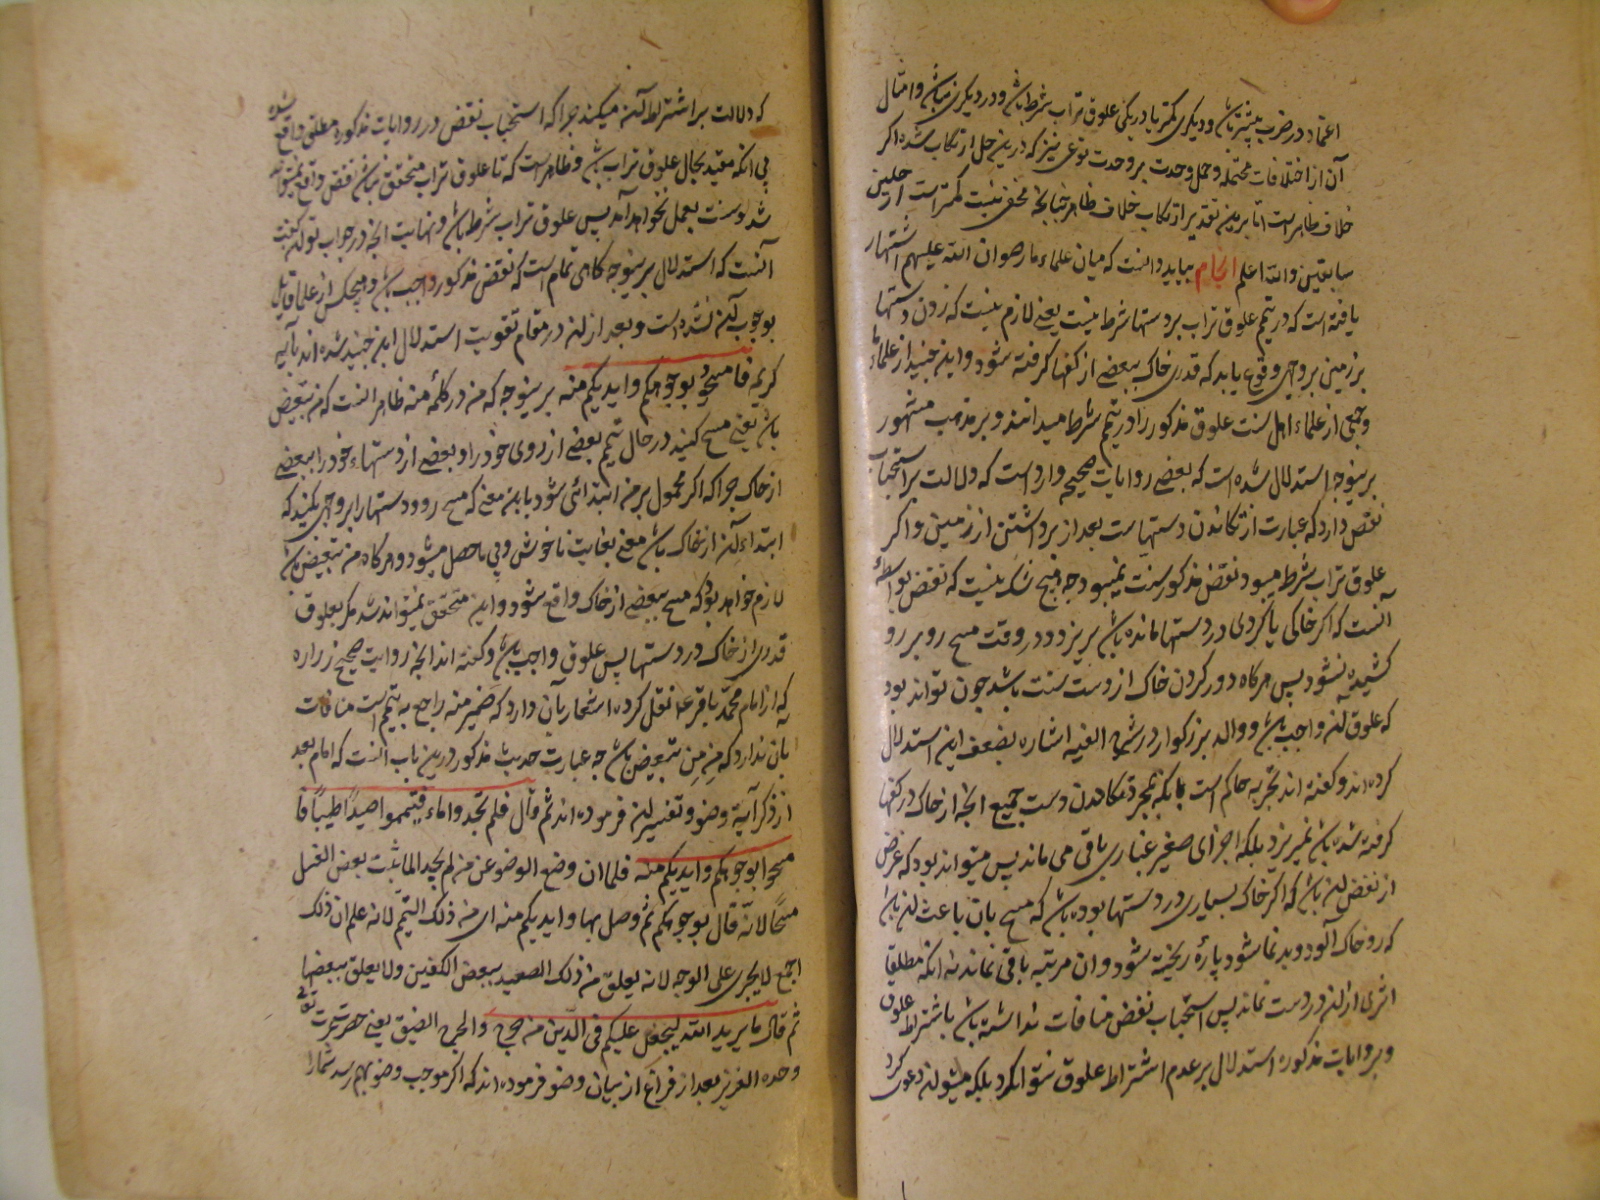 اعتماد در ضرب بیشتر باشد و دیگری کمتر یا در یکی علوق تراب شرط باشد و در دیگری نباشد و امثال
آن از اختلافات محتمله و حمل وحدت بر وحدت نوعی نیز که درین حل ارتکاب شده اگر
خلاف ظاهر است اما برین تقدیر ارتکاب خلاف ظاهر چنانچه مخفی نیست کمتر است از حلین
سابقین والله اعلم انجام بباید دانست که میان علماء ما رضوان الله علیهم اشتهار
یافته است که در تیمم علوق تراب بر دستها شرط نیست یعنی لازم نیست که زدن دستها
بر زمین بر وجهی وقوع یابد که قدری خاک ببعضی از کفها گرفته شود و ابن جنید از علماء ما
و جمعی از علماء اهل سنت علوق مذکور را در تیمم شرط میدانند و بر مذهب مشهور
برینوجه استدلال شده است که بعضی روایات صحیحه وارد است که دلالت بر استحباب
نفض دارد که عبارت از تکاندن دستهاست بعد از برداشتن از زمین و اگر
علوق تراب شرط میبود نفض مذکور سنت نمیبود چه هیچ شک نیست که نفض بواسطهٔ
آنست که اگر خاکی یا گردی در دستها مانده باشد بریزد و در وقت مسح رو بر رو
کشیده نشود پس هرگاه دور کردن خاک از دست سنت باشد چون تواند بود
که علوق آن واجب باشد و والد بزرگوار در شرح الفیه اشاره بضعف این استدلال
کرده‌اند و گفته‌اند تجربه حاکم است بآنکه بمجرد تکاندن دست جمیع آنچه از خاک در کفها
گرفته شده باشد نمیریزد بلکه اجزای صغیر غباری باقی می ماند پس میتواند بود که غرض
از نفض آن باشد که اگر خاک بسیاری در دستها بوده باشد که مسح بآن باعث آن باشد
که رو خاک آلود و بدنما شود پارهٔ ریخته شود و آن مرتبه باقی نماند نه آنکه مطلقا
اثری از آن در دست نماند پس استحباب نفض منافات نداشته باشد باشتراط علوق
و بروایات مذکوره استدلال بر عدم اشتراط علوق نتوان کرد بلکه میتوان دعوی کرد
که دلالت بر اشتراط آن میکند چرا که استحباب نفض در روایات مذکوره مطلق واقع شده
بی آنکه مقید بحال علوق تراب باشد و ظاهر است که تا علوق تراب متحقق نباشد نفض واقع نمیتواند
شد و سنت بعمل نخواهد آمد پس علوق تراب شرط باشد و نهایت آنچه در جواب توان گفت
آنست که استدلال برینوجه گاهی تمام است که نفض مذکور واجب باشد و هیچکس از علما قایل
بوجوب آن نشده است و بعد از آن در مقام تقویت استدلال ابن جنید شده‌اند بآیه
کریمه فامسحوا بوجوهکم وایدیکم منه برینوجه که من در کلمهٔ منه ظاهر آنست که من تبعیض
باشد یعنی مسح کنید در حال تیمم بعضی از روی خود را و بعضی از دستهاء خود را ببعضی
از خاک چرا که اگر محمول بر من ابتدائی شود باین معنی که مسح رو و دستها را بر وجهی بکنید که
ابتداء آن از خاک باشد معنی بغایت ناخوش و بی ماحصل میشود و هرگاه من تبعیض باشد
لازم خواهد بود که مسح ببعضی از خاک واقع شود و این متحقق نمیتواند شد مگر بعلوق
قدری از خاک در دستها پس علوق واجب باشد و گفته‌اند آنچه روایت صحیح زراره
که از امام محمد باقر ع نقل کرده اشعار بآن دارد که ضمیر منه راجع به تیمم است منافات
بآن ندارد که مِن مِن تبعیض باشد چه عبارت حدیث مذکور درین باب آنست که امام بعد
از ذکر آیهٔ وضو و تفسیر آن فرموده‌اند ثم قال فلم تجدوا ماء فتیمموا صعیدا طیبا فا
مسحوا بوجوهکم وایدیکم منه فلما ان وضع الوضو عن من لم یجد الماء اثبت بعض الغسل
مسحا لانه قال بوجوهکم ثم وصل بها وایدیکم منه ای من ذلک التیمم لانه علم ان ذلک
اجمع لا یجری علی الوجه لانه یعلق من ذلک الصعید ببعض الکفین ولا یعلق ببعضها
ثم قال ما یرید الله لیجعل علیکم فی الدین من حرج والحرج الضیق یعنی حضرت عزت تعالی
وحده العزیز بعد از فراغ از بیان وضو فرموده‌اند که اگر موجب وضو بهم رسد شما را